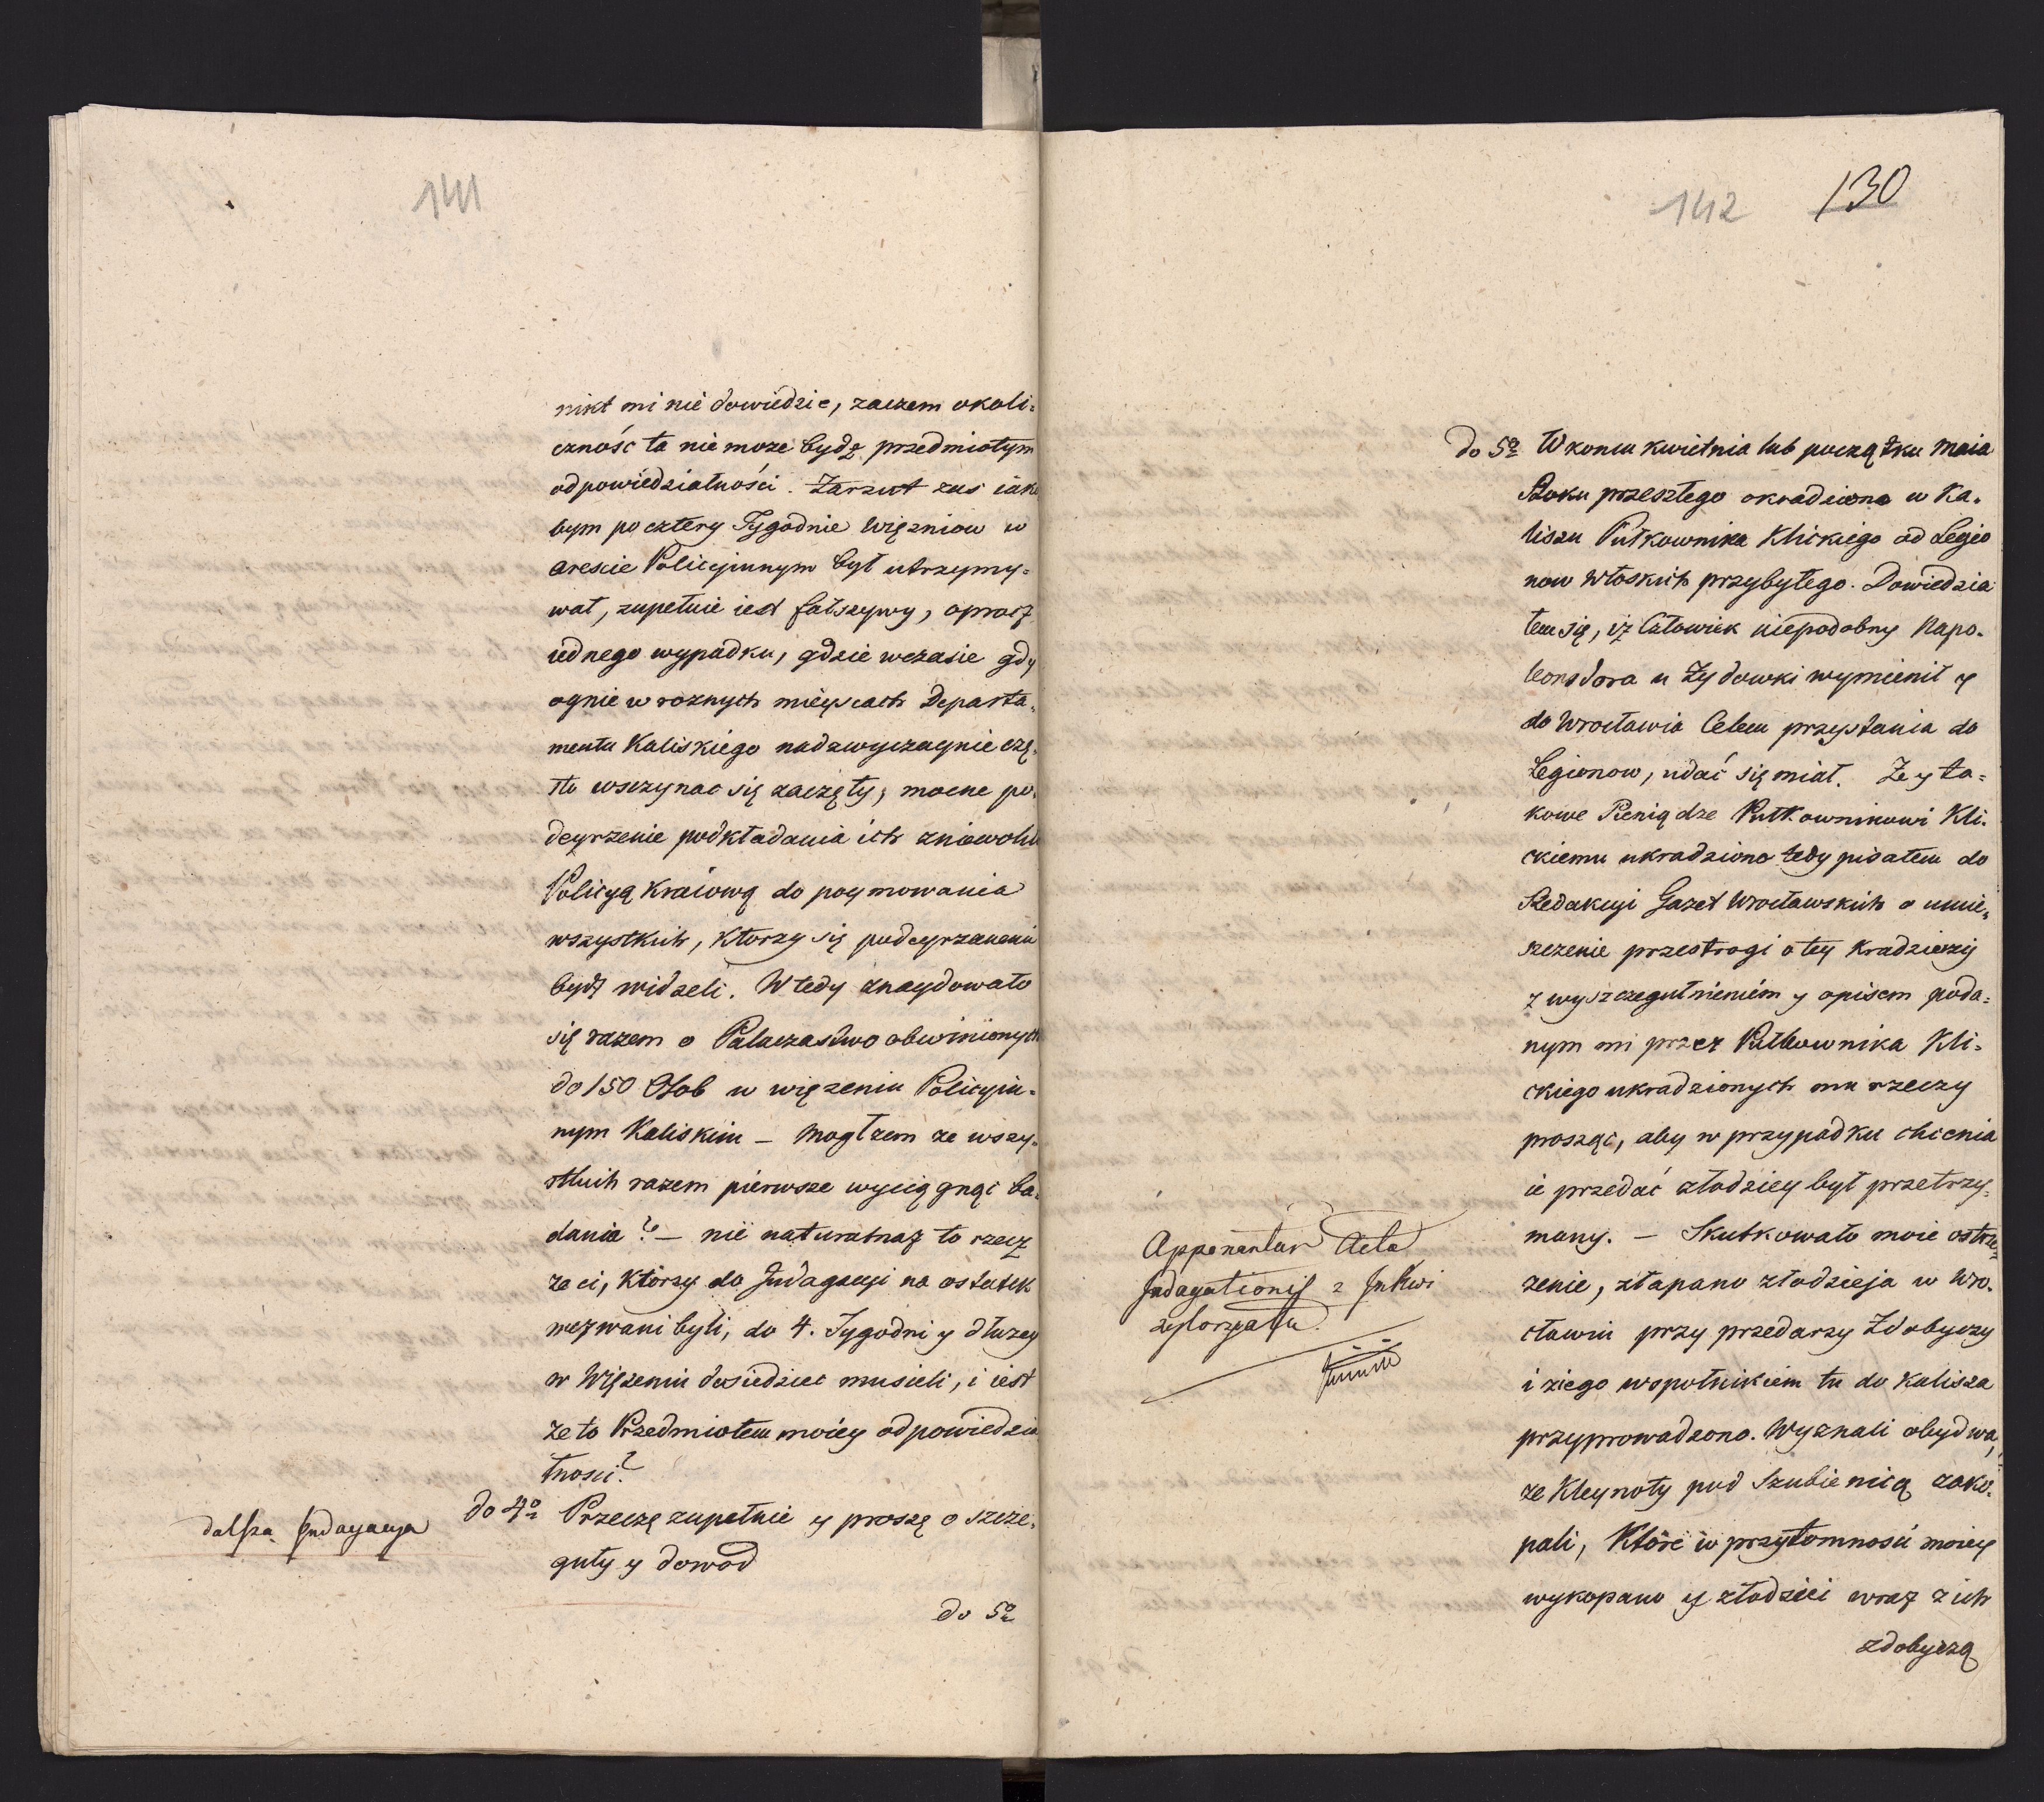 141
nikt mi nie dowiedzie, zaczem okoli=
czność ta nie moze bydź przedmiotym
odpowiedzialności. Zarzut zas iako
bym po cztery Tygodnie Więzniow w
areście Policyinnym był utrzymy=
wał, zupełnie iest fałszywy, oprocz
iednego wypadku, gdzie wczasie gdy
ognie w roznych mieyscach Departa=
mentu Kaliskiego nadzwyczaynie czę=
sto wszczynac się zaczęły, mocne po=
deyrzenie podkładania ich zniewoliło
Policyą Kraiową do poymowania
wszystkich, ktorzy się podeyrzanemi
bydź widzeli. Wtedy znaydowało
się razem o Palaczastwo obwinionych
do 150 Osob w więzeniu Policyin=
nym Kaliskim – Mogłzem ze wszy=
stkich razem pierwsze wyciągnąc ba=
dania? – nie naturalnaz to rzecz
ze ci, ktorzy do Indagacyi na ostatek
wezwani byli, do 4. Tygodni y dłuzey
w Więzeniu dosiedziec musieli, i iest
ze to Przedmiotem moiey odpowiedzia
lnosci?
dalsza Indagacya
do 4o Przeczę zupełnie y proszę o szcze=
guły y dowod
do 5o
142 130
do 5o W koncu kwietnia lub początku Maia
Roku przeszłego okradziono w Ka=
liszu Pułkownika Klickiego od Legio
now Włoskich przybyłego. Dowiedzia
łem się, iz Człowiek niepodobny Napo=
leonsdora u Zydowki wymienił y
do Wrocławia Celem przystania do
Legionow, udać się miał. Ze y ta=
kowe Pieniądze Pułkownikowi Kli=
ckiemu ukradziono tedy pisałem do
Redakcyi Gazet Wrocławskich o umie=
szczenie przestrogi o tey Kradziezy
z wyszczegulnieniem y opisem poda=
nym mi przez Pułkownika Kli=
ckiego ukradzionych mu rzeczy
prosząc, aby w przypadku chcenia
ie przedać złodziey był przetrzy=
many. – Skutkowało moie ostrze=
zenie, złapano złodzieja w Wro=
cławiu przy przedarzy Zdobyczy
i ziego wspolnikiem tu do Kalisza
przyprowadzono. Wyznali obydwa,
ze Kleynoty pod Szubienicą zako=
pali, Ktore w przytomnosci moiey
wykopano y złodziei wraz z ich
zdobyczą
Apponantur Acta
Indagationis z Inkwi
zytorzatu.